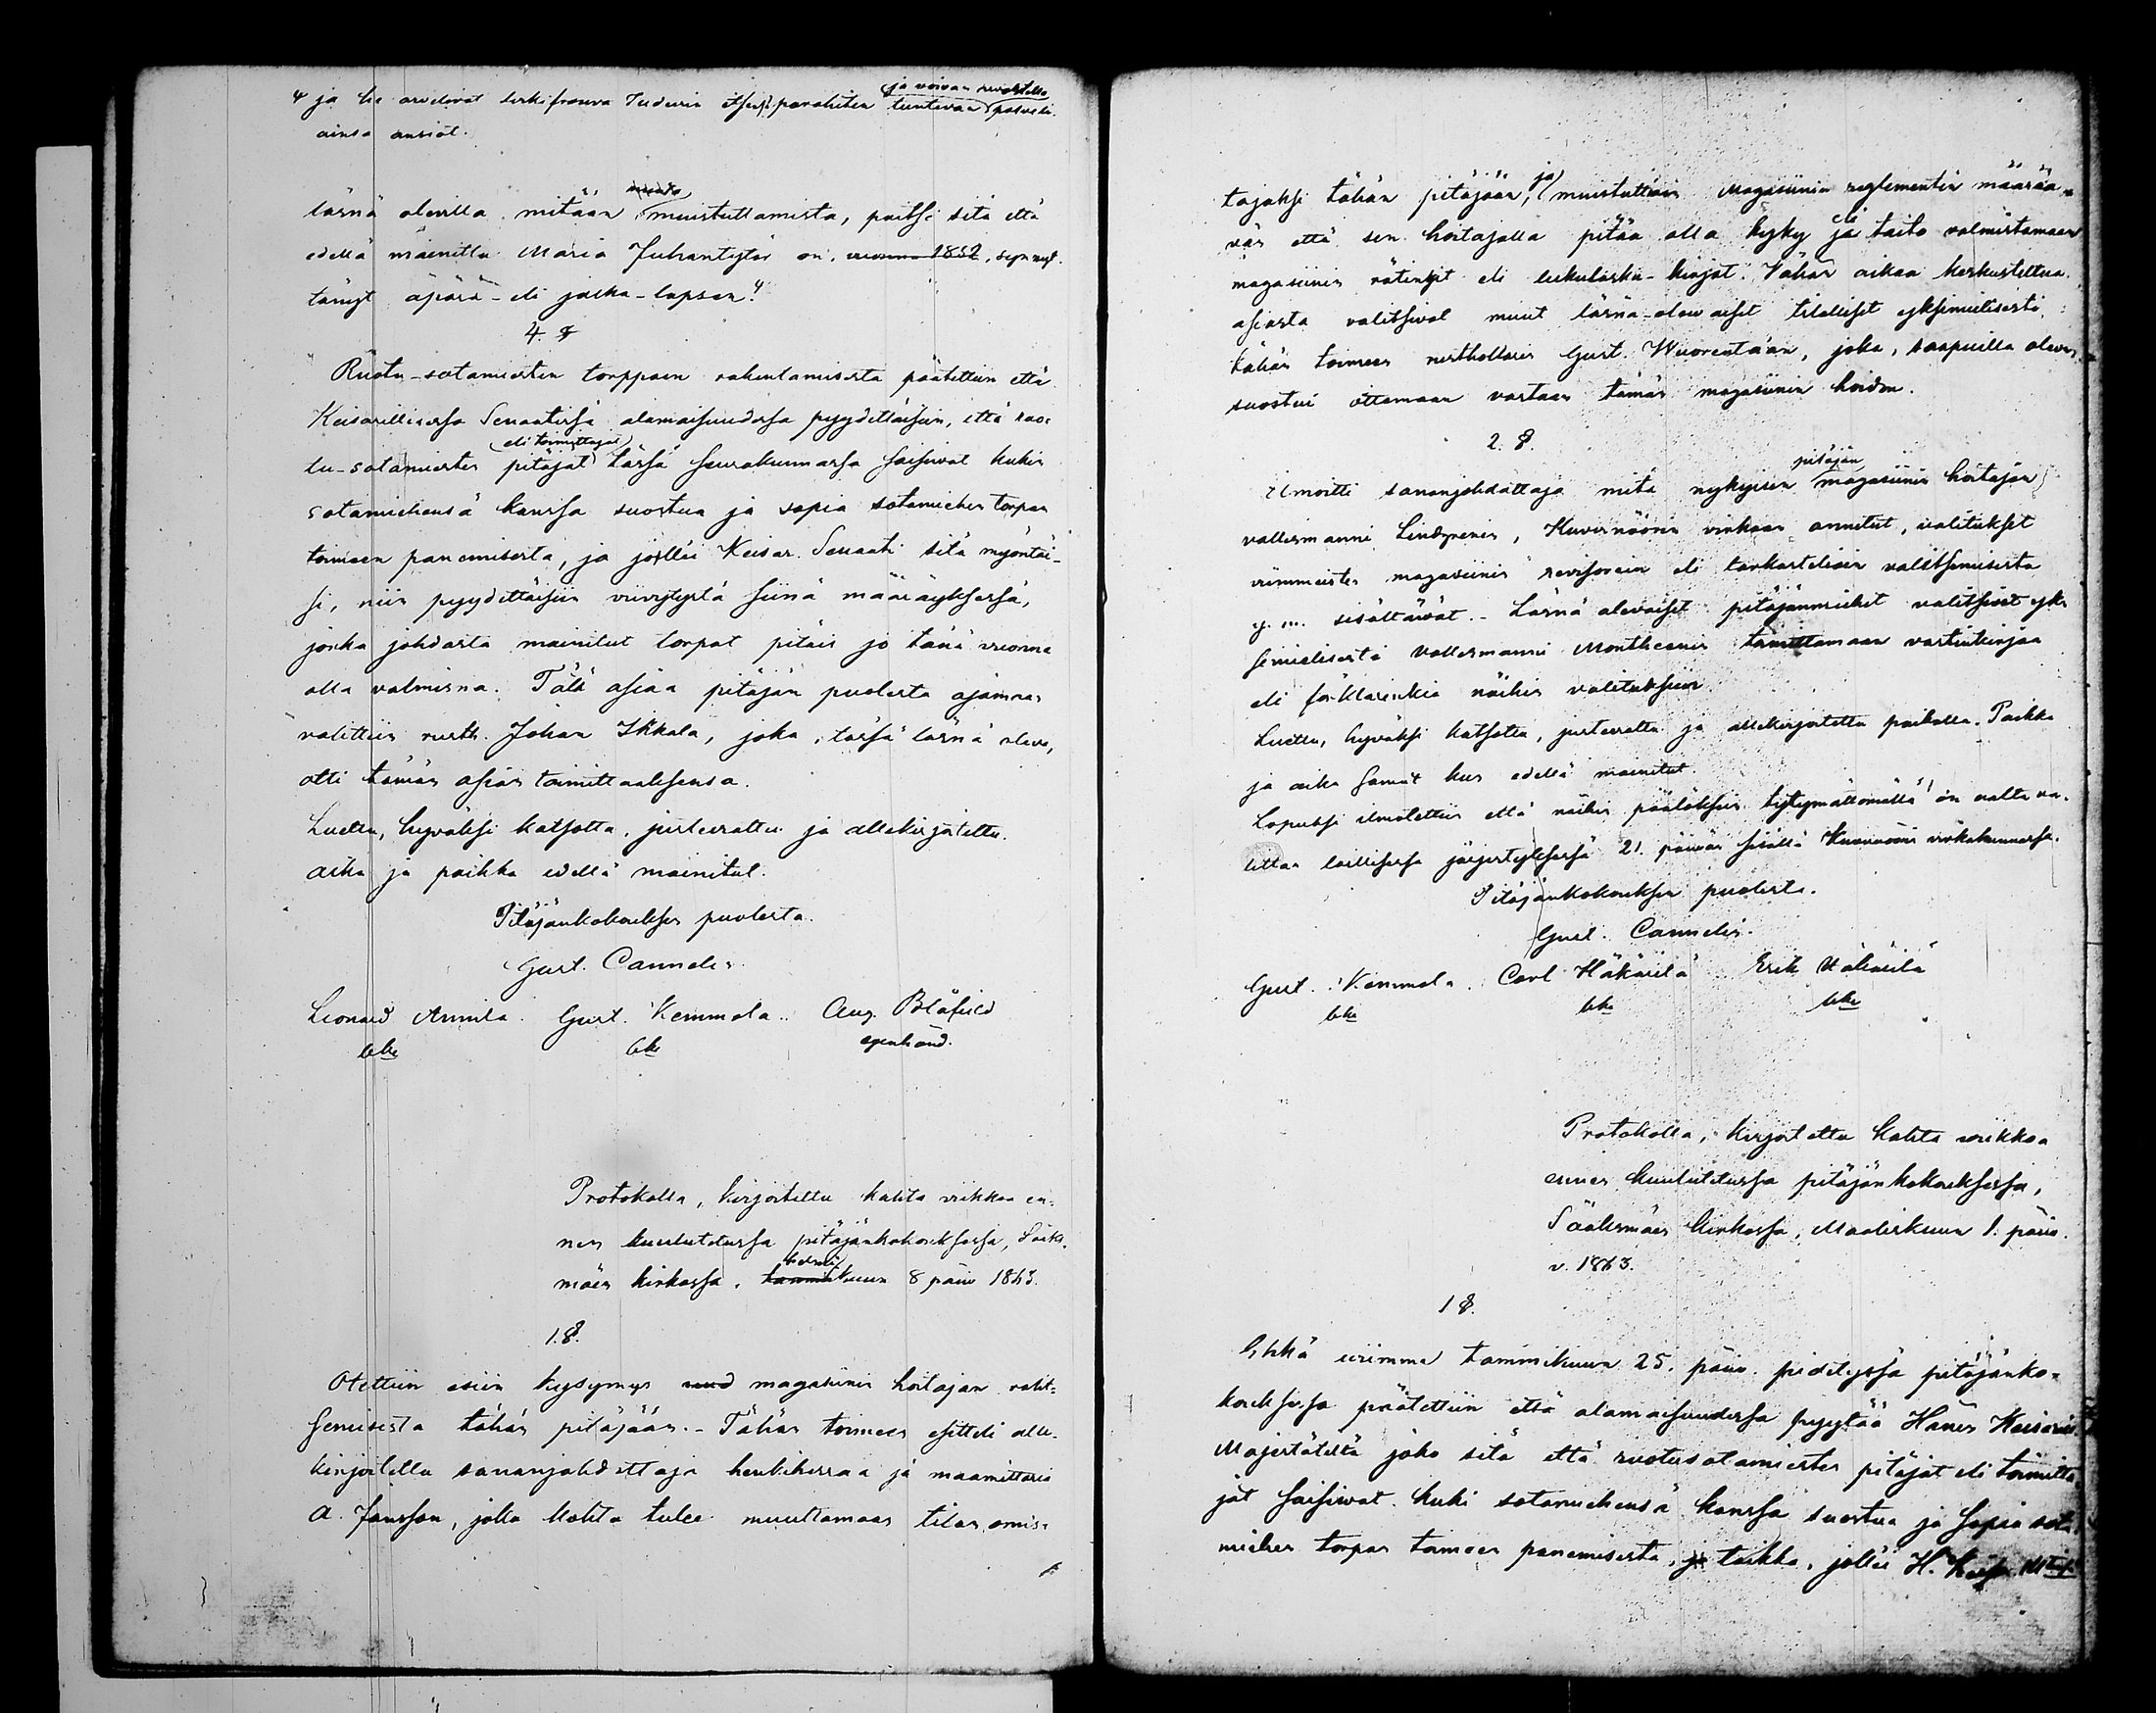 ja he arvelivat leskifrouva Tudeerin itsensä parahiten tuntevan ja voivan arvostella palveli-
ainsa ansiot.
läsnä olevilla mitään muistuttamista, paitsi sitä että
edellä mainittu Maria Juhantytär on, vuonna 1852, synnyt-
tänyt äpärä- eli jalka-lapsen.
4. §
Ruotu-sotamiesten torppain rakentamisesta päätettiin että
Keisarillisessa Senaatissa alamaisuudessa pyydettäisiin, että ruo-
tu-sotamiesten pitäjät eli toimittajat tässä seurakunnassa saisivat kukin
sotamiehensä kanssa suostua ja sopia sotamiehen torpan
toimeen panemisesta, ja jollei Keisar. Senaati sitä myöntäi-
si, niin pyydettäisiin viivytystä siinä määräyksessä,
jonka johdosta mainitut torpat pitäis jo tänä vuonna
olla valmisna. Tätä asiaa pitäjän puolesta ajamaan
valittiin rusth. Johan Ikkala, joka, tässä läsnä oleva,
otti tämän asian toimittaaksensa.
Luettu, hyväksi katsottu, justeerattu ja allekirjoitettu.
aika ja paikka edellä mainitut.
Pitäjänkokouksen puolesta.
Gust. Cannelin
Leonard Annila. Gust. Kemmola. Aug. Blåfield
egenhänd.
Protokolla, kirjoitettu kahta viikkoa en-
nen kuulutetussa pitäjänkokouksessa, Sääks-
mäen kirkossa, helmikuun 8 päiv 1863.
1. §.
Otettiin esiin kysymys magasiinin hoitajan valit-
semisesta tähän pitäjään. - Tähän toimeen esitteli alle-
kirjoitettu sananjohdattaja henkikirjaa ja maamittaria
A. Jansson, jolla kohta tulee muuttamaan tilan omis-
tajaksi tähän pitäjään, ja muistuttain Magasiinin reglementin määrää-
vän että sen hoitajalla pitää olla kyky eli taito valmistamaan
magasiinin rätingit eli lukulasku-kirjat. Vähän aikaa keskusteltua
asiasta valitsivat muut läsnä-olevaiset tilalliset yksimielisesti
tähän toimeen rusthollarin Gust. Wuorentaan, joka, saapuilla oleva,
suostui ottamaan vastaan tämän magasiinin hoidon.
2. §.
Ilmoitti sananjohdattaja mitä nykyisen pitäjän magasiinin hoitajan
vallesmanni Lindgrenin, Kuvernöörin virkaan annetut, valitukset
viimmeisten magasiinin revisorein eli tarkastelioin valitsemisesta
y. m. sisältävät. - Läsnä olevaiset pitäjänmiehet valitsivat yk-
simielisesti vallesmanni Montheenin toimittamaan vastinkirjaa
eli förklarinkia näihin valituksiin.
Luettu, hyväksi katsottu, justeerattu ja allekirjoitettu paikalla. Paikka
ja aika samat kun edellä mainitut.
Lopuksi ilmoitettiin että näihin päätöksiin tytymättömällä on valta va-
littaa laillisessa järjestyksessä 21. päivän sisällä Kuvernöörin virkakunnassa.
Pitäjänkokouksen puolesta.
Gust. Cannelin.
Gust. Kemmola. Carl Häkärilä Erik Häkärilä
Protokolla, kirjoitettu kahta viikkoa
ennen kuulutetussa pitäjänkokouksessa,
Sääksmäen kirkossa, Maaliskuun 1. päiv.
v. 1863.
1 §.
Ehkä viimme tammikuun 25. päiv. pidetyssä pitäjänko-
kouksessa päätettiin että alamaisuudessa pyytää Hänen Keisarill.
Majestätiltä joko sitä että ruotusotamiesten pitäjät eli toimitta-
jat saisivat kuki sotamiehensä kanssa suostua ja sopia sota-
miehen torpan toimeen panemisesta, taikka, jollei H. Keis. Maj:t